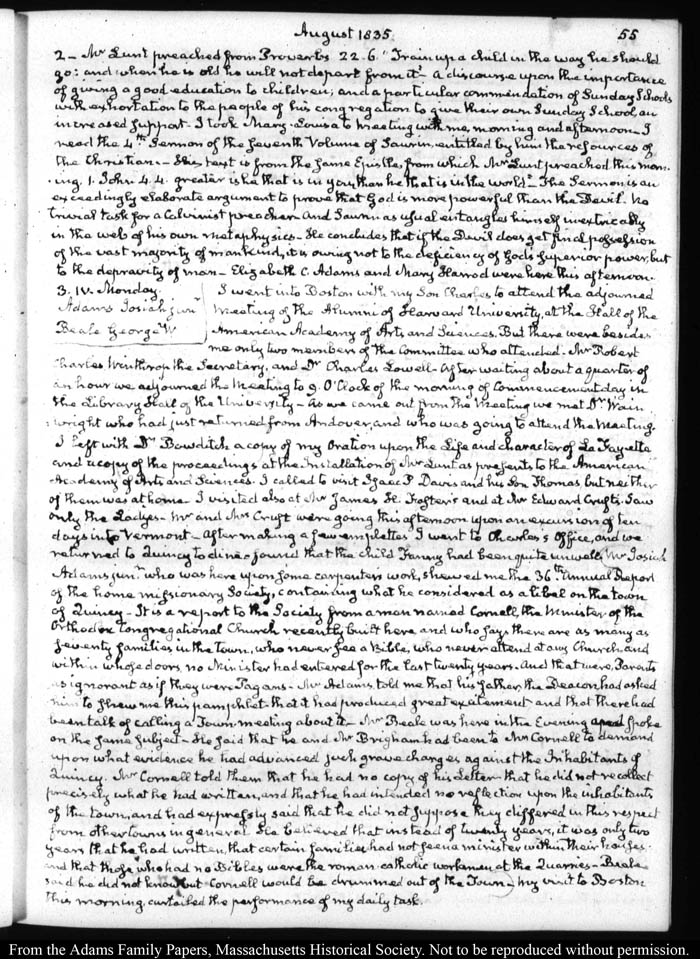 August 1835. 55
2 – Mr Lunt preached from Proverbs 22. 6. "Train up a child in the way he should
go: and when he is old he will not depart from it" – a discourse upon the importance
of giving a good education to children; and a particular commendation of Sunday Schools
with exhortation to the people of his congregation to give their own Sunday School, an
increased support – I took Mary-Louisa to Meeting with me, morning and afternoon – I
read the 4th Sermon of the seventh Volume of Saurin, entitled by him the resources of
the Christian – His text is from the same Epistle, from which Mr Lunt preached this morn-
ing. 1. John 4. 4. greater is he that is in you, than he that is in the world" – The Sermon is an
exceedingly elaborate argument to prove that God is more powerful than the Devil. No
trivial task for a Calvinist preacher – And Saurin as usual entangles himself inextricably
in the web of his own metaphysics – He concludes that if the Devil does get final possession
of the vast majority of mankind, it is owing not to the deficiency of Gods superior power, but
to the depravity of man – Elizabeth C. Adams and Mary Harrod were here this afternoon.
3. IV. Monday.
Adams Josiah junr
Beale George W
I went into Boston with my Son Charles to attend the adjourned
Meeting of the Alumni of Harvard University, at the Hall of the
American Academy of Arts and Sciences. But there were besides
me only two members of the Committee who attended. Mr Robert
Charles Winthrop the Secretary, and Dr Charles Lowell – After waiting about a quarter of
an hour we adjourned the Meeting to 9. O'Clock of the morning of Commencement day in
the Library Hall of the University – As we came out from the Meeting we met Dr Wain-
wright who had just returned from Andover, and who was going to attend the Meeting.
I left with Dr Bowditch a copy of my Oration upon the Life and character of La Fayette
and a copy of the proceedings at the Installation of Mr Lunt as presents to the American
Academy of Arts and Sciences. I called to visit Isaac P Davis and his Son Thomas but neither
of them was at home – I visited also at Mr James H. Foster's and at Mr Edward Cruft's. Saw
only the Ladies – Mr and Mrs Cruft were going this afternoon upon an excursion of ten
days into Vermont – After making a few emplettes I went to Charles's Office, and we
returned to Quincy to dine – found that the child Fanny had been quite unwell. Mr Josiah
Adams junr who was here upon some carpenters work, shewed me the 36th Annual Report
of the home missionary Society, containing what he considered as a libel on the town
of Quincy – It is a report to the Society from a man named Cornell, the Minister of the
Orthodox Congregational Church recently built here and who says there are as many as
seventy families in the town, who never see a Bible, who never attend at any Church, and
within whose doors, no Minister had entered for the last twenty years – And that were, Parents
as ignorant as if they were Pagans – Mr Adams told me that his father, the Deacon had asked
him to shew me this pamphlet – that it had produced great excitement and that there had
been talk of calling a Town meeting about it – Mr Beale was here in the Evening and spoke
on the same subject – He said that he and Mr Brigham had been to Mr Cornell to demand
upon what evidence he had advanced such grave charges against the Inhabitants of
Quincy. Mr Cornell told them that he had no copy of his Letter – that he did not recollect
precisely what he had written, and that he had intended no reflection upon the inhabitants
of the town, and had expressly said that he did not suppose they differed in this respect
from other towns in general – He believed that instead of twenty years, it was only two
years that he had written, that certain families had not seen a minister within their houses.
and that those who had no Bibles were the roman catholic workmen at the Quarries – Beale
said he did not know but Cornell would be drummed out of the Town – My visit to Boston
this morning, curtailed the performance of my daily task.
From the Adams Family Papers, Massachusetts Historical Society. Not to be reproduced without permission.